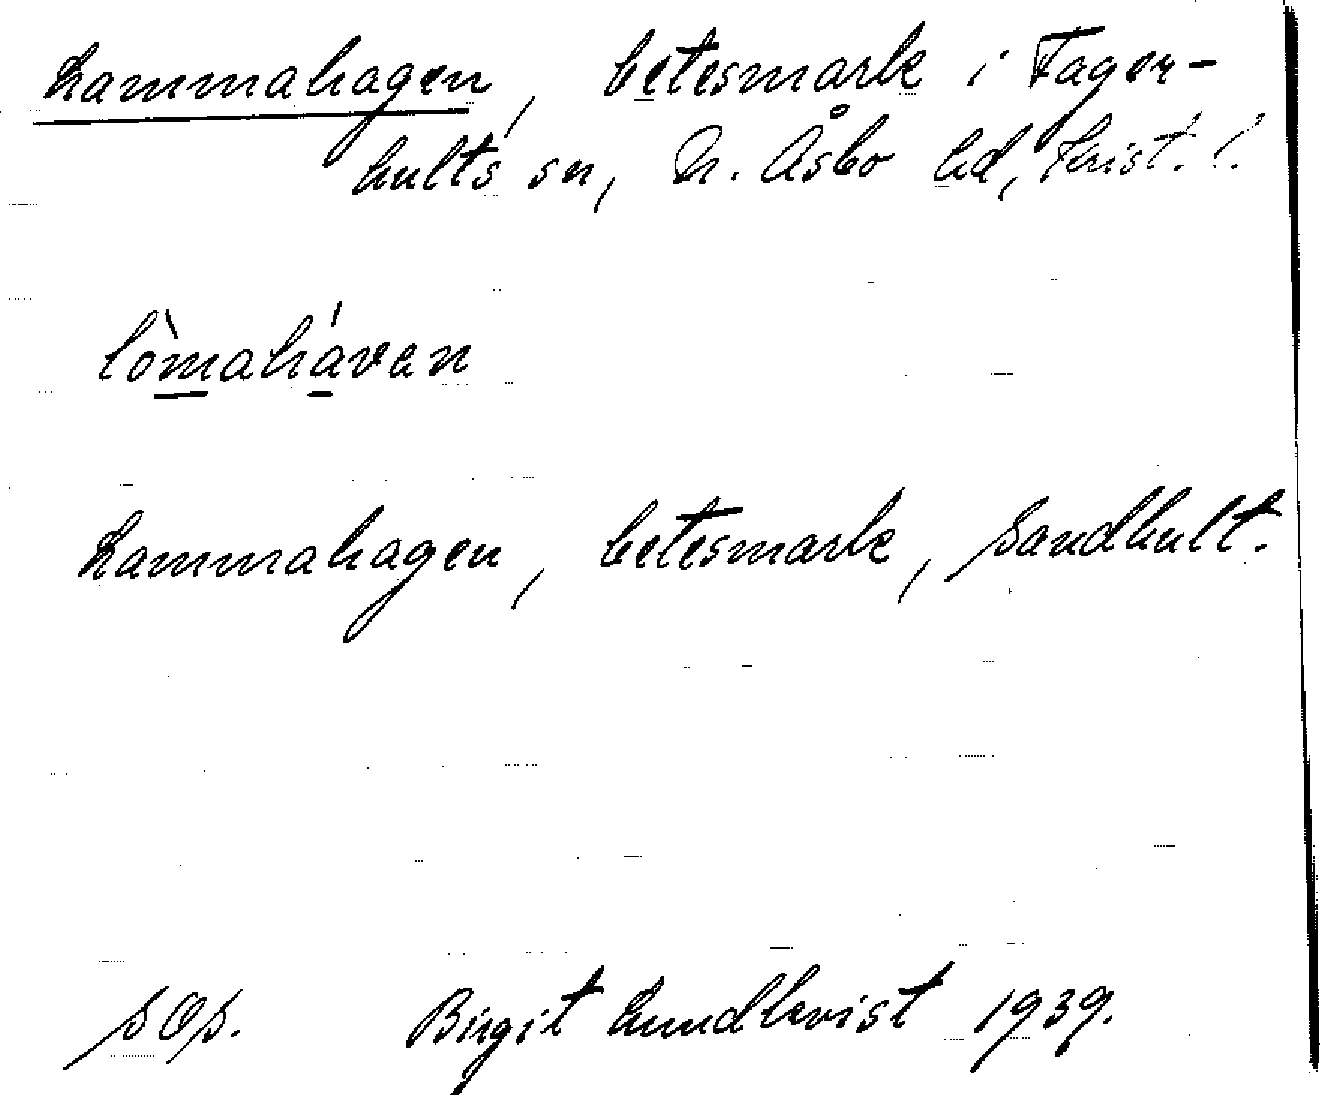 Lammahagen, betesmark i Fager-
hults sn, N. Åsbo hd, Krist. l.
lòmahávan
Lammahagen, betesmark, Sandhult.
SOS. Birgit Lundkvist 1939.